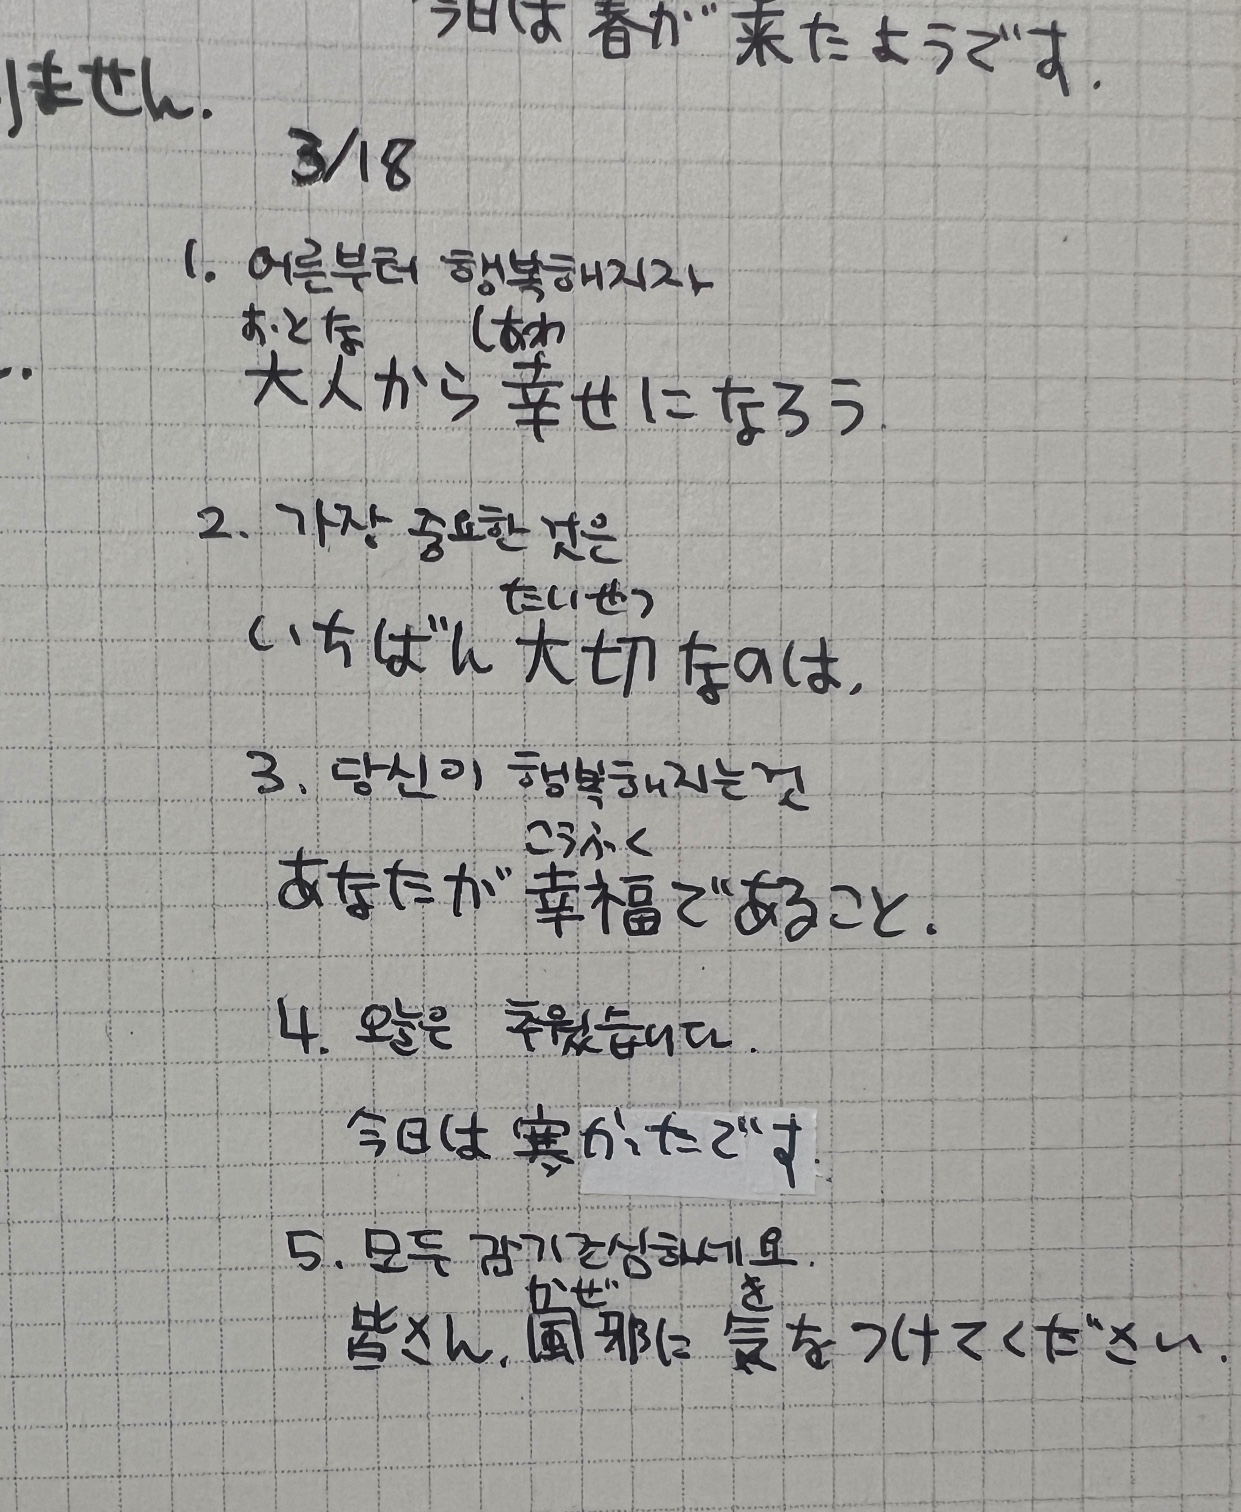 今日は春が来たようです.
りません.
3/18
1. 어른부터 행복해지자
おとな しあわ
大人から幸せになろう.
2. 가장 중요한 것은
たいせつ
いちばん大切なのは,
3. 당신이 행복해지는것
こうふく
あなたが幸福であること.
4. 오늘은 추웠습니다.
今日は寒かったです.
5. 모두 감기조심하세요.
かぜ き
皆さん, 風邪に気をつけてください.